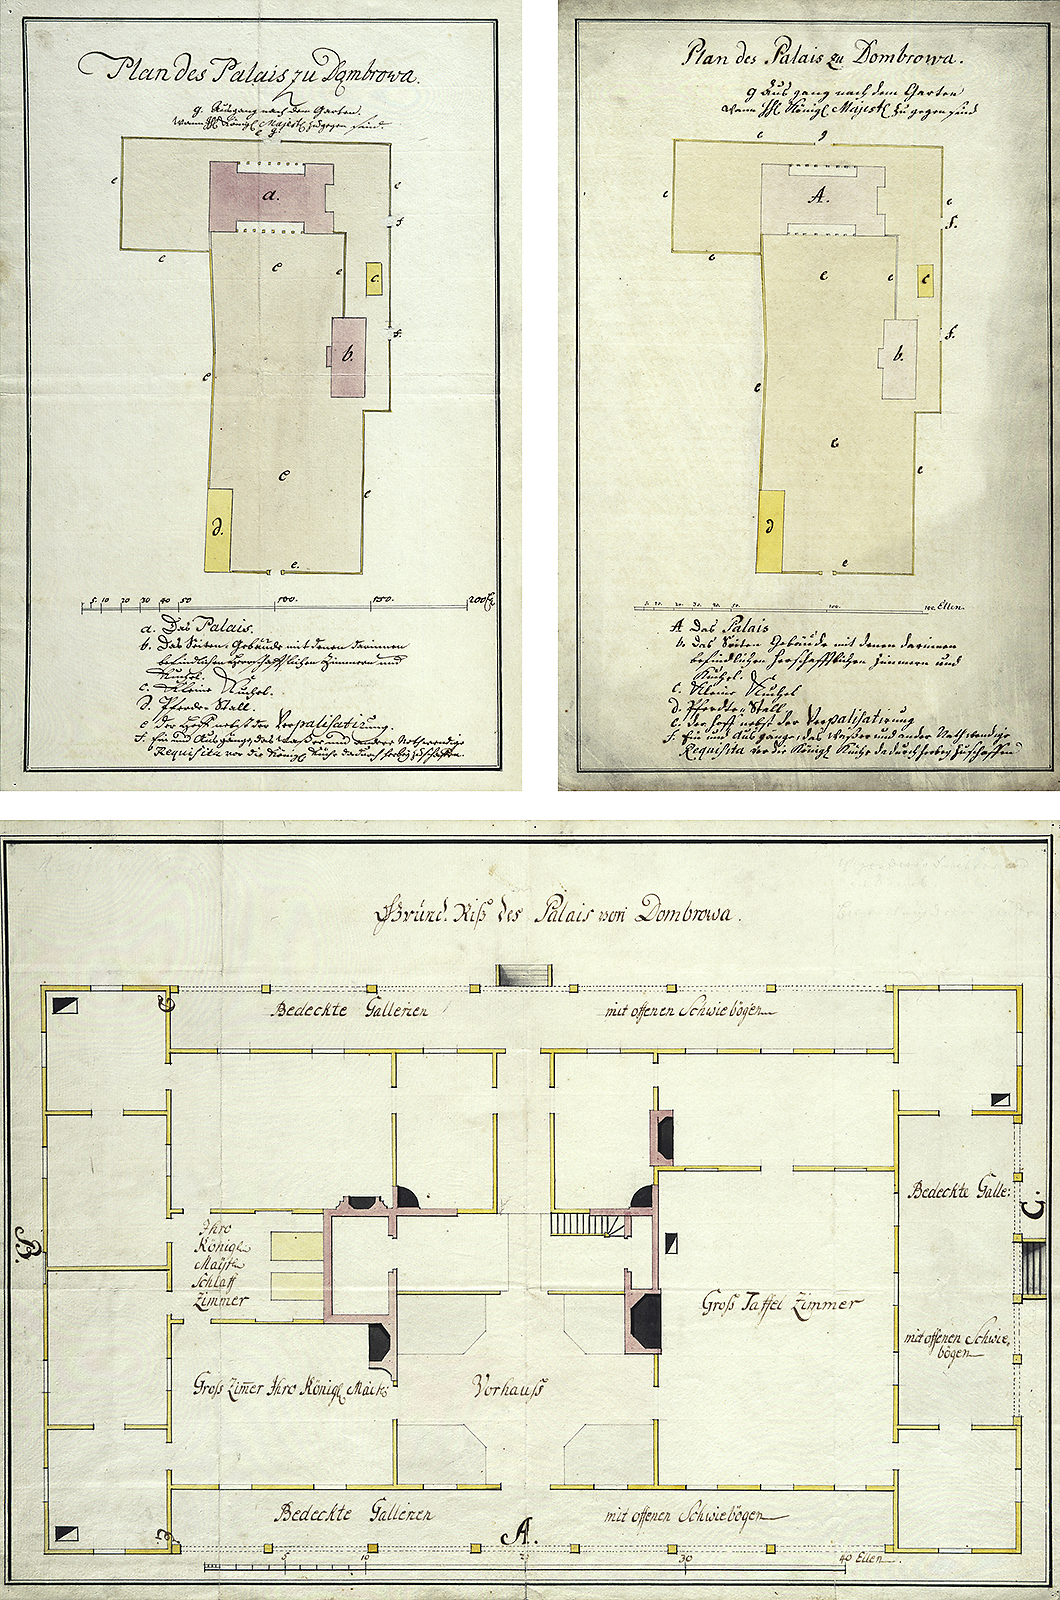 Plan des Palais zu Dombrowa.
g. Ausgang nach dem Garten.
wann Ihl Königl Majestt zu gegen sind.
e g.
e
e
a.
f.
e
e
e
c.
f.
b.
e
e
e
d.
e.
5 10 20 30 40 50 100. 150. 200 El
a. Das Palais.
b. Das Seiten-Gebäude mit denen darinnen
befindlichen Herrschafftlichen Zimmern und
Kuchel.
c. Kleine Kuchel.
d. Pferde-Stall.
e der Hoff nebst der Verpalisatirung.
f. Ein und Ausgänge, das Waßer und andere Nothwendige
Requisita vor die Königl Küche dadurch herbey zu schaffen
Plan des Palais zu Dombrowa.
g Ausgang nach dem Garten
wann Ihl Königl Majestt zu gegen sind
e g
e
A.
e
f.
e
e
e
c
f.
b.
e
e
e
d
e
5. 10. 20. 30. 40. 50. 100. 200. Ellen.
A Das Palais
b. das Seiten Gebäude mit denen darinnen
befindlichen Herschafftlichen Zimmern und
Kuchel.
c. Kleine Kuchel
d. Pferdte-Stall
e. der Hoff nebst der Verpalisatirung
f. Ein und Ausgänge, das Waßer und ander Nothwendige
Requisita vor die Königl Küche dadurch herbey zu schaffen
Grund-Riß des Palais von Dombrowa.
Bedeckte Gallerien mit offenen Schwiebögen
Bedeckte Galle:
C.
B.
Ihro
Königl.
Mayst.
Schlaff
Zimmer
Groß Taffel Zimmer
mit offenen Schwie,
bögen
Groß Zimer Ihro Königl. Maiest:
Vorhauß
Bedeckte Gallerien mit offenen Schwiebögen
A.
5 10 20 30 40 Ellen.